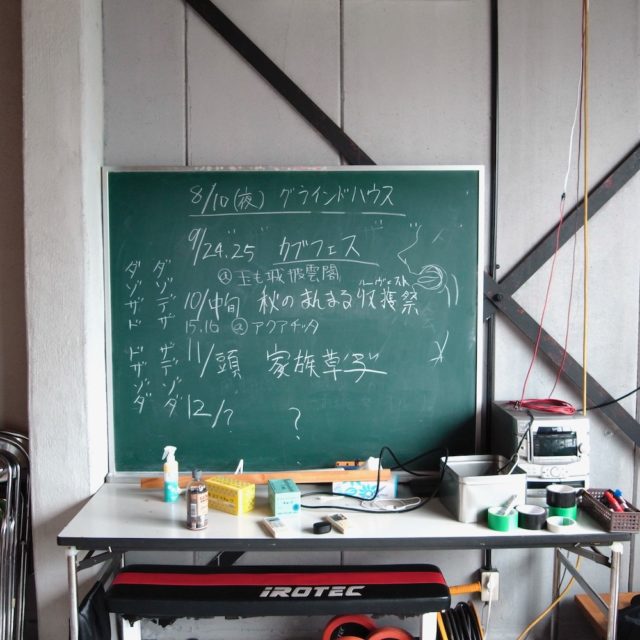 8/10(夜) グラインドハウス
9/24.25 カブフェス
@玉も城披雲閣
ハーヴェスト
10/中旬 秋のあじまる収穫祭
15.16 @アクアチッタ
11/頭 家族草子
12/? ?
ダ ゾ ザ ド
ダ ゾ デ ザ
ド ザ ゾ ダ
ザ デ ゾ ダ
IROTEC